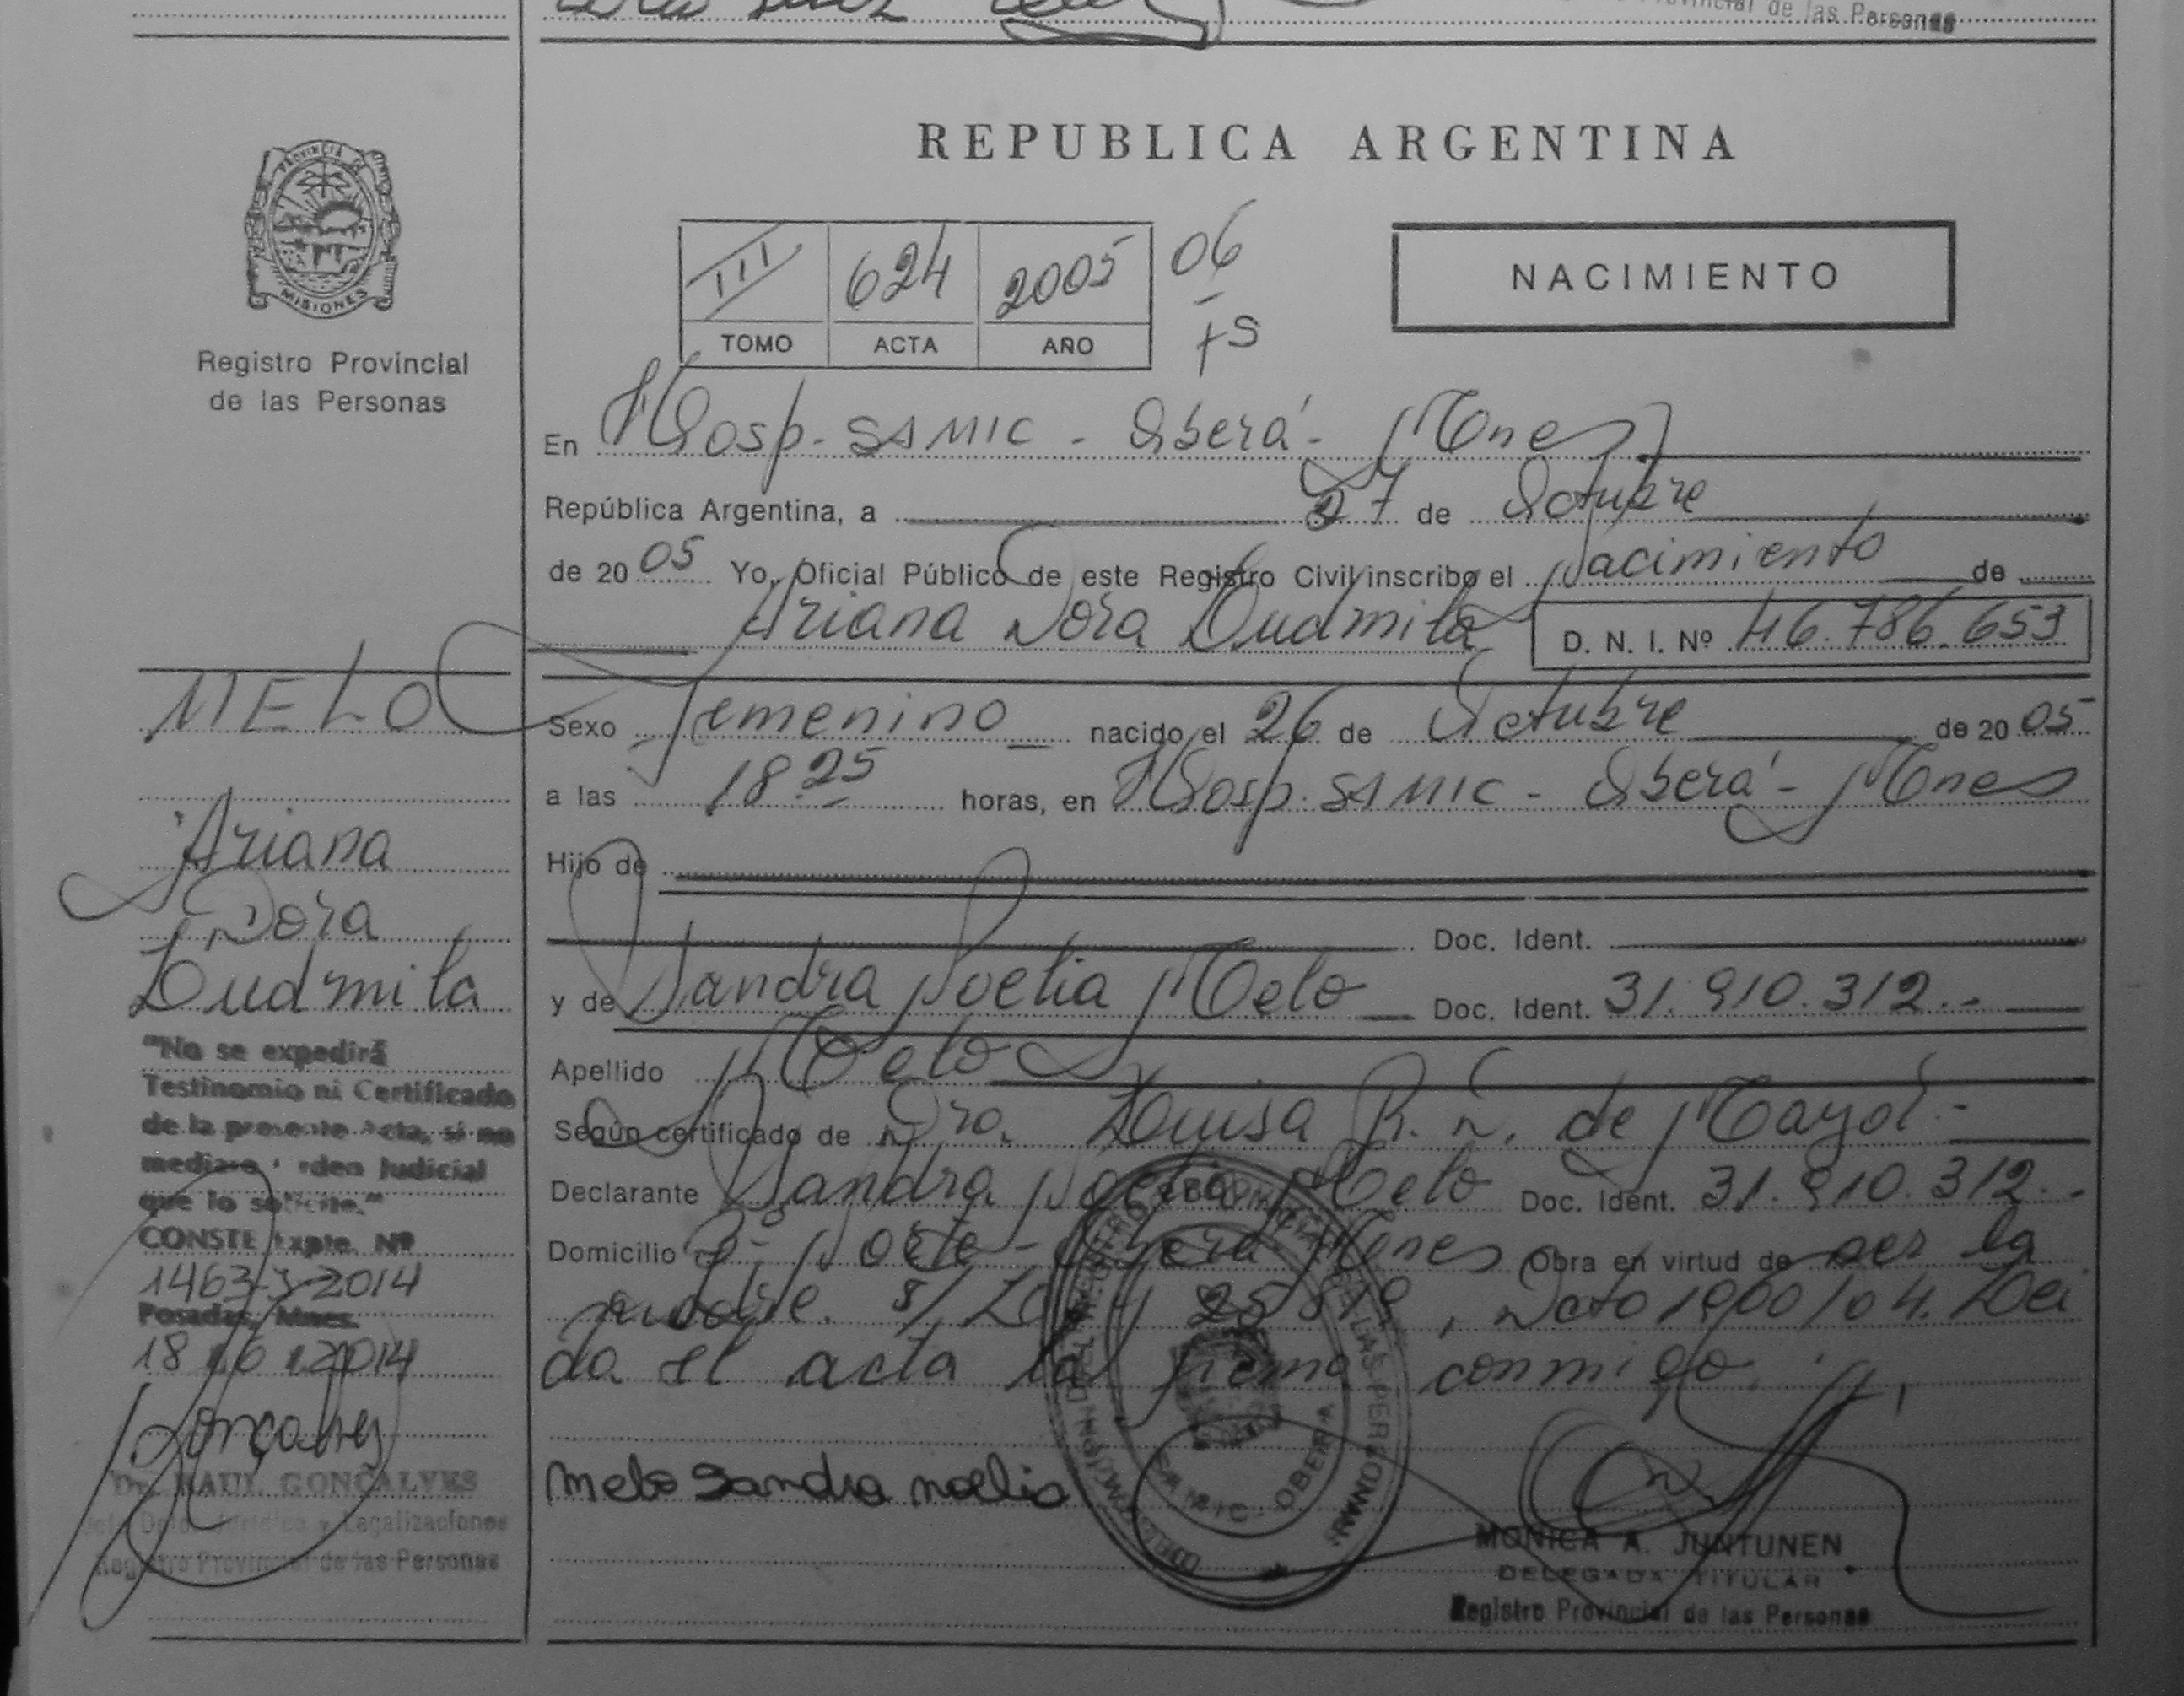 de las Personas
PROVINCIA DE
MISIONES
Registro Provincial
de las Personas
REPUBLICA ARGENTINA
III 624 2005 06
TOMO ACTA AÑO
NACIMIENTO
En Hosp. SAMIC - Oberá - Mnes
República Argentina, a 27 de Octubre
de 20 05 Yo, Oficial Público de este Registro Civil inscribo el Nacimiento de
Ariana Dora Ludmila D. N. I. Nº 46.786.653
Sexo Femenino nacido el 26 de Octubre de 20 05
a las 18.25 horas, en Hosp. SAMIC - Oberá - Mnes
Hijo de
Doc. Ident.
y de Sandra Noelia Melo Doc. Ident. 31.910.312.-
Apellido Melo
Según certificado de Dra. Luisa R. N. de Mayol.-
Declarante Sandra Noelia Melo Doc. Ident. 31.910.312.-
Domicilio Oberá Mnes Obra en virtud de ser la
madre. s/ Ley 25819, Dcto 1900/04. Lei
da el acta la firma conmigo.
Melo Sandra noelia
SAMIC - OBERA
MONICA A. JUNTUNEN
DELEGADA TITULAR
Registro Provincial de las Personas
MELO
Ariana
Dora
Ludmila
"No se expedirá
Testinomio ni Certificado
de la presente Acta, si no
mediare orden Judicial
que lo solicite."
CONSTE Expte. Nº
1463-J-2014
Posadas, Mnes.
18 2014
Gonçalves
Dr. RAUL GONÇALVES
Jefe Dpto. Jurídico y Legalizaciones
Registro Provincial de las Personas